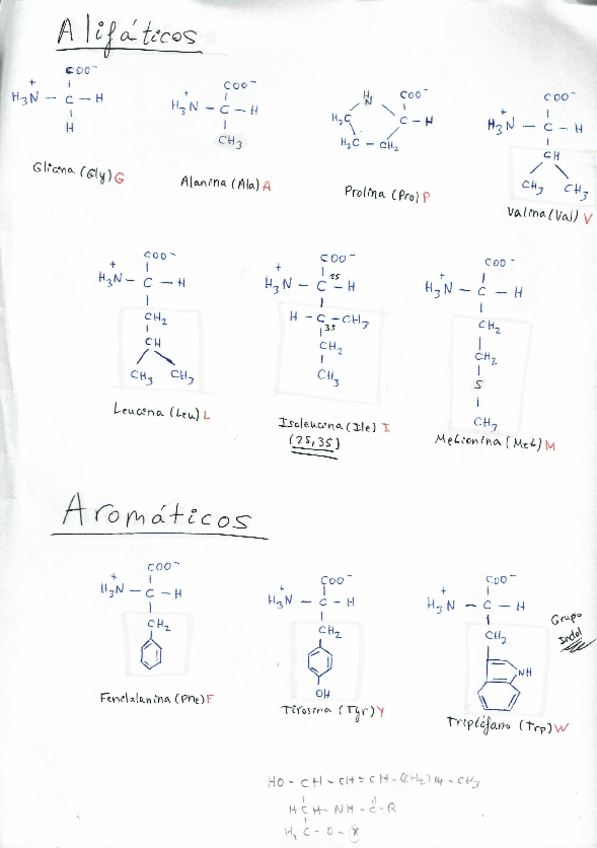 Alifáticos
COO⁻
H₃N⁺ – C – H
H
Glicina (Gly) G
COO⁻
H₃N⁺ – C – H
CH₃
Alanina (Ala) A
HN COO⁻
H₂C C – H
H₂C – CH₂
Prolina (Pro) P
COO⁻
H₃N⁺ – C – H
CH
CH₃ CH₃
Valina (Val) V
COO⁻
H₃N⁺ – C – H
CH₂
CH
CH₃ CH₃
Leucina (Leu) L
COO⁻
2S
H₃N⁺ – C – H
H – C – CH₃
3S
CH₂
CH₃
Isoleucina (Ile) I
(2S, 3S)
COO⁻
H₃N⁺ – C – H
CH₂
CH₂
S
CH₃
Metionina (Met) M
Aromáticos
COO⁻
H₃N⁺ – C – H
CH₂
Fenilalanina (Phe) F
COO⁻
H₃N⁺ – C – H
CH₂
OH
Tirosina (Tyr) Y
COO⁻
H₃N⁺ – C – H
CH₂
NH
Grupo
Indol
Triptófano (Trp) W
HO – CH – CH = CH – (CH₂)₁₄ – CH₃
HCH – NH – C – R
H₂C – O – X